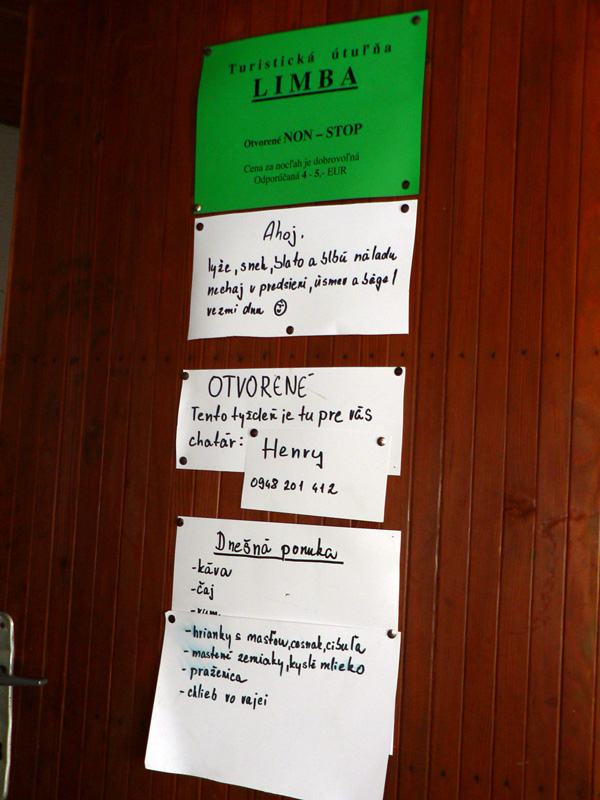 Turistická útuľňa
LIMBA
Otvorené NON – STOP
Cena za nocľah je dobrovoľná
Odporúčaná 4 - 5,- EUR
Ahoj.
lyže, sneh, blato a blbú náladu
nechaj v predsieni, úsmev a bágel
vezmi dnu
OTVORENÉ
Tento týždeň je tu pre vás
chatár:
Henry
0948 201 412
Dnešná ponuka
-káva
-čaj
-rum
-hrianky s masťou, cesnak, cibuľa
-mastené zemiaky, kyslé mlieko
-praženica
-chlieb vo vajci